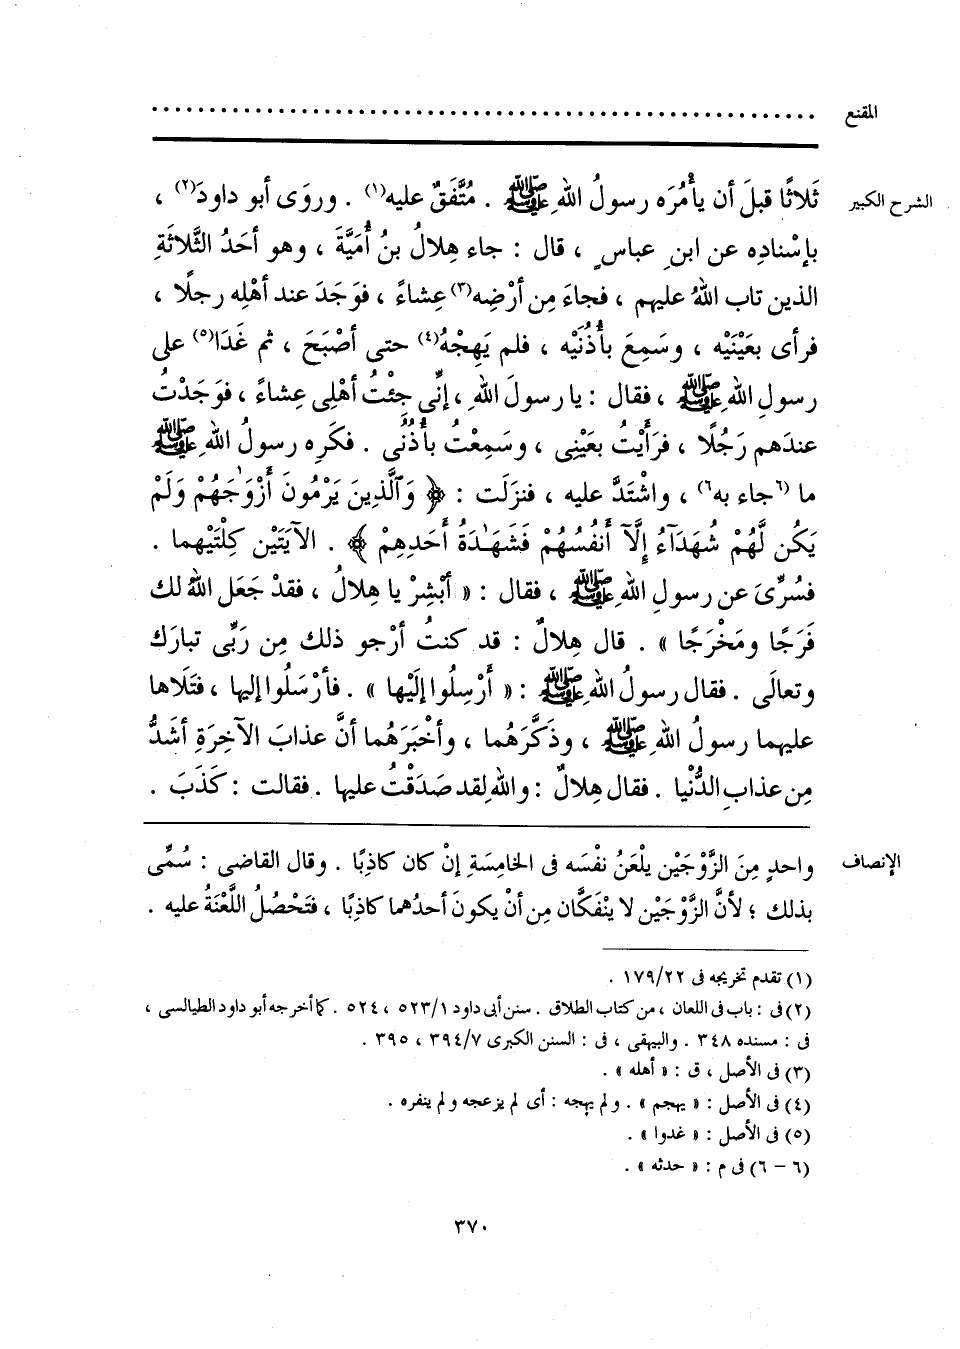 المقنع ......................................................
الشرح الكبير ثَلاثًا قبلَ أن يأْمُرَه رسولُ اللهِ ﷺ . مُتَّفَقٌ عليه(١) . وروَى أبو داودَ(٢) ،
بإسْنادِه عن ابنِ عباسٍ ، قال : جاء هِلالُ بنُ أُمَيَّةَ ، وهو أحَدُ الثَّلاثَةِ
الذين تاب اللهُ عليهم ، فجاءَ مِن أرْضِه(٣) عِشاءً ، فوَجَدَ عند أهْلِه رجلًا ،
فرأى بعَيْنَيْه ، وسَمِعَ بأُذُنَيْه ، فلم يَهِجْهُ(٤) حتى أصْبَحَ ، ثم غَدَا(٥) على
رسولِ اللهِ ﷺ ، فقال : يا رسولَ اللهِ ، إنِّى جِئْتُ أهْلِى عِشاءً ، فوَجَدْتُ
عندَهم رَجُلًا ، فرَأَيْتُ بعَيْنِى ، وسَمِعْتُ بأُذُنِى . فكَرِه رسولُ اللهِ ﷺ
ما (٦جاء به٦) ، واشْتَدَّ عليه ، فنزَلَت : ﴿ وَٱلَّذِينَ يَرْمُونَ أَزْوَٰجَهُمْ وَلَمْ
يَكُن لَّهُمْ شُهَدَآءُ إِلَّآ أَنفُسُهُمْ فَشَهَـٰدَةُ أَحَدِهِمْ ﴾ . الآيَتَيْن كِلْتَيْهما .
فسُرِّىَ عن رسولِ اللهِ ﷺ ، فقال : « أَبْشِرْ يا هِلالُ ، فقدْ جَعَل اللهُ لك
فَرَجًا ومَخْرَجًا » . قال هِلالٌ : قد كنتُ أرْجو ذلك مِن رَبِّى تبارَك
وتعالَى . فقال رسولُ اللهِ ﷺ : « أَرْسِلُوا إِلَيْها » . فأرْسَلُوا إليها ، فتَلَاها
عليهما رسولُ اللهِ ﷺ ، وذَكَّرَهُما ، وأخْبَرَهُما أنَّ عذابَ الآخِرَةِ أشَدُّ
مِن عذابِ الدُّنْيا . فقال هِلالٌ : واللهِ لقد صَدَقْتُ عليها . فقالت : كَذَبَ .
الإنصاف واحدٍ مِنَ الزَّوْجَيْن يلْعَنُ نفْسَه فى الخامِسَةِ إنْ كان كاذِبًا . وقال القاضى : سُمِّى
بذلك ؛ لأنَّ الزَّوْجَيْن لا ينْفَكَّان مِن أنْ يكونَ أحدُهما كاذِبًا ، فتَحْصُلُ اللَّعْنَةُ عليه .
(١) تقدم تخريجه فى ١٧٩/٢٢ .
(٢) فى : باب فى اللعان ، من كتاب الطلاق . سنن أبى داود ٥٢٣/١ ، ٥٢٤ . كما أخرجه أبو داود الطيالسى ،
فى : مسنده ٣٤٨ . والبيهقى ، فى : السنن الكبرى ٣٩٤/٧ ، ٣٩٥ .
(٣) فى الأصل ، ق : « أهله » .
(٤) فى الأصل : « يهجم » . ولم يهجه : أى لم يزعجه ولم ينفره .
(٥) فى الأصل : « غدوا » .
(٦ - ٦) فى م : « حدثه » .
٣٧٠